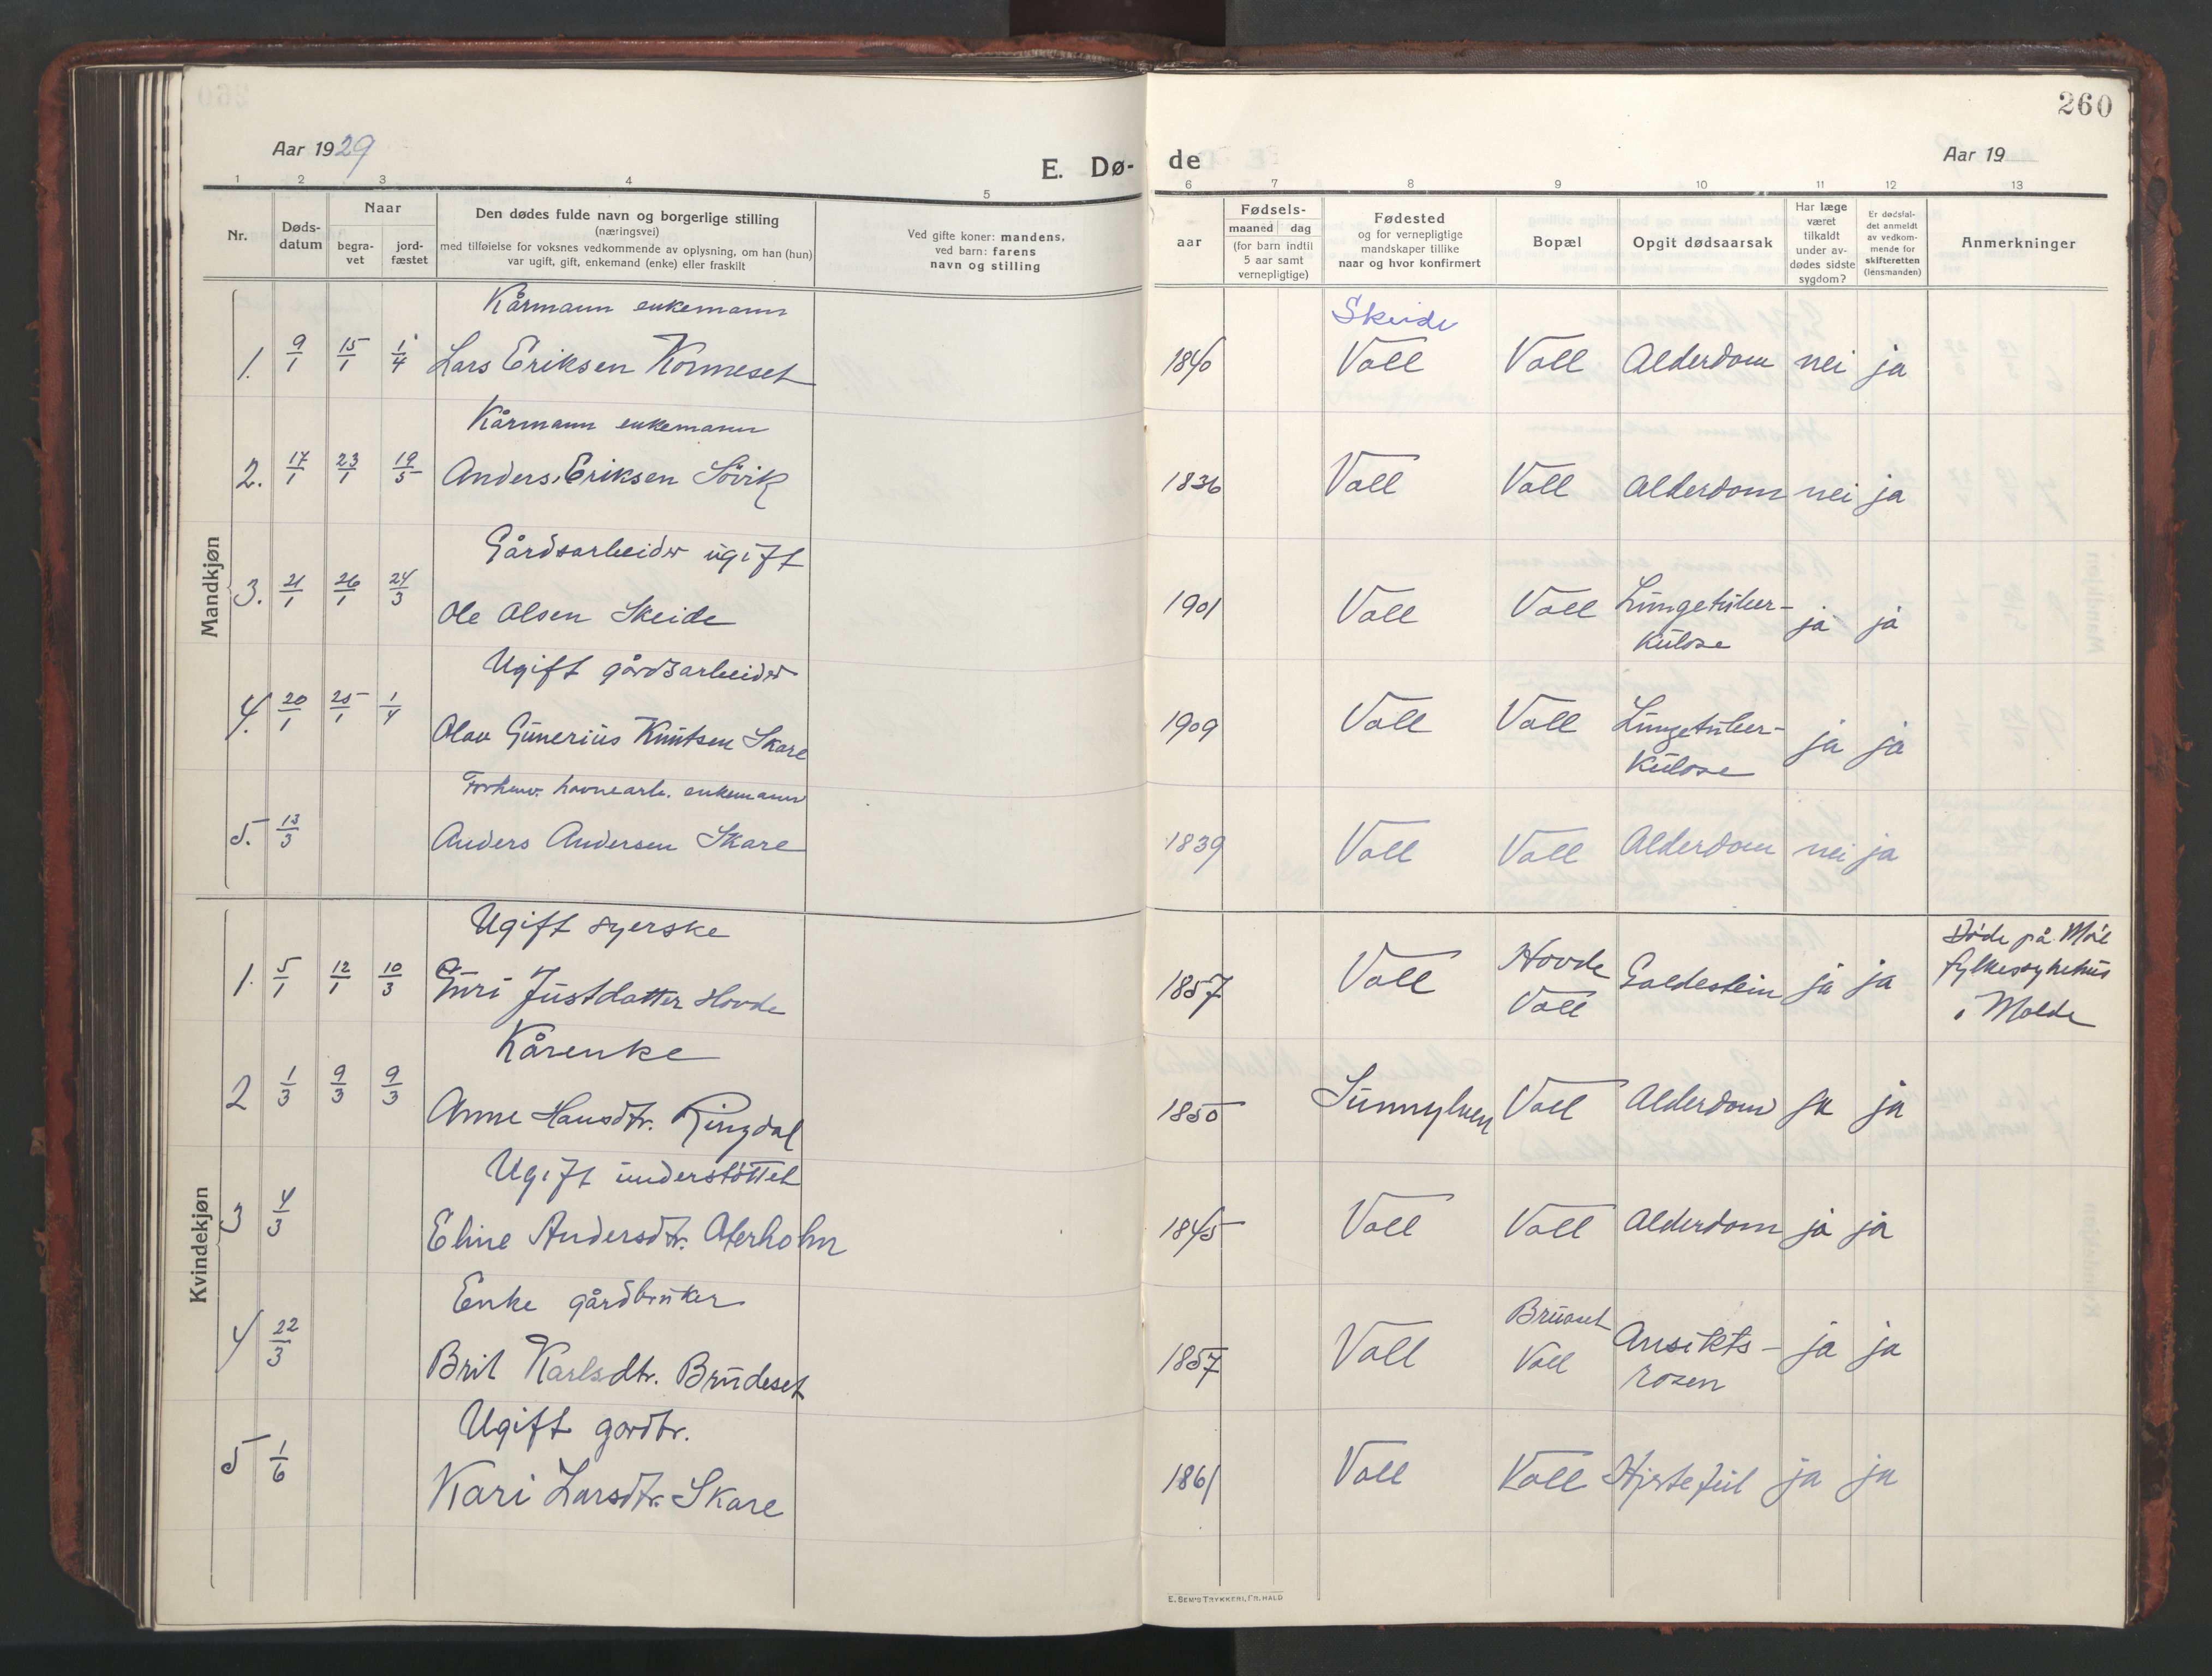 260
Aar 1929
E. Dø- de
Aar 19
1 2 3 4 5 6 7 8 9 10 11 12 13
Nr.
Døds-
datum
Naar
begra-
vet
jord-
fæstet
Den dødes fulde navn og borgerlige stilling
(næringsvei)
med tilføielse for voksnes vedkommende av oplysning, om han (hun)
var ugift, gift, enkemand (enke) eller fraskilt
Ved gifte koner: mandens,
ved barn: farens
navn og stilling
aar
Fødsels-
maaned dag
(for barn indtil
5 aar samt
vernepligtige)
Fødested
og for vernepligtige
mandskaper tillike
naar og hvor konfirmert
Bopæl
Opgit dødsaarsak
Har læge
været
tilkaldt
under av-
dødes sidste
sygdom?
Er dødsfal-
det anmeldt
av vedkom-
mende for
skifteretten
(lensmanden)
Anmerkninger
Mandkjøn
Kårmann enkemann Skeide
1. 9/1 15/1 1/4 Lars Eriksen Kormeset 1840 Voll Voll Alderdom nei ja
Kårmann enkemann
2. 17/1 23/1 19/5 Anders Eriksen Sövik 1836 Voll Voll Alderdom nei ja
Gårdsarbeider ugift
3. 21/1 26/1 24/3 Ole Olsen Skeide 1901 Voll Voll Lungetuber- ja ja
kulose
Ugift gårdsarbeider
4. 20/1 25/1 1/4 Olav Gunerius Knutsen Skare 1909 Voll Voll Lungetuber- ja ja
kulose
Forhenv. havnearb. enkemann
5. 13/3 Anders Andersen Skare 1839 Voll Voll Alderdom nei ja
Kvindekjøn
Ugift syerske Hovde Døde på
1. 5/1 12/1 10/3 Guri Justdatter Hovde 1857 Voll Voll Galdestein ja ja fylkessykehus
i Molde
Kårenke
2 1/3 9/3 9/3 Anne Hansdtr. Ringdal 1850 Sunnylven Voll Alderdom ja ja
Ugift understöttet
3 4/3 Eline Andersdtr. 1845 Voll Voll Alderdom ja ja
Enke gårdbruker Bruaset
4 22/3 Brit Karlsdtr. Brudeset 1857 Voll Voll Ansikts- ja ja
rosen
Ugift gardbr.
5 1/6 Kari Larsdtr. Skare 1861 Voll Voll Hjertefeil ja ja
E. SEM'S TRYKKERI, FR. HALD